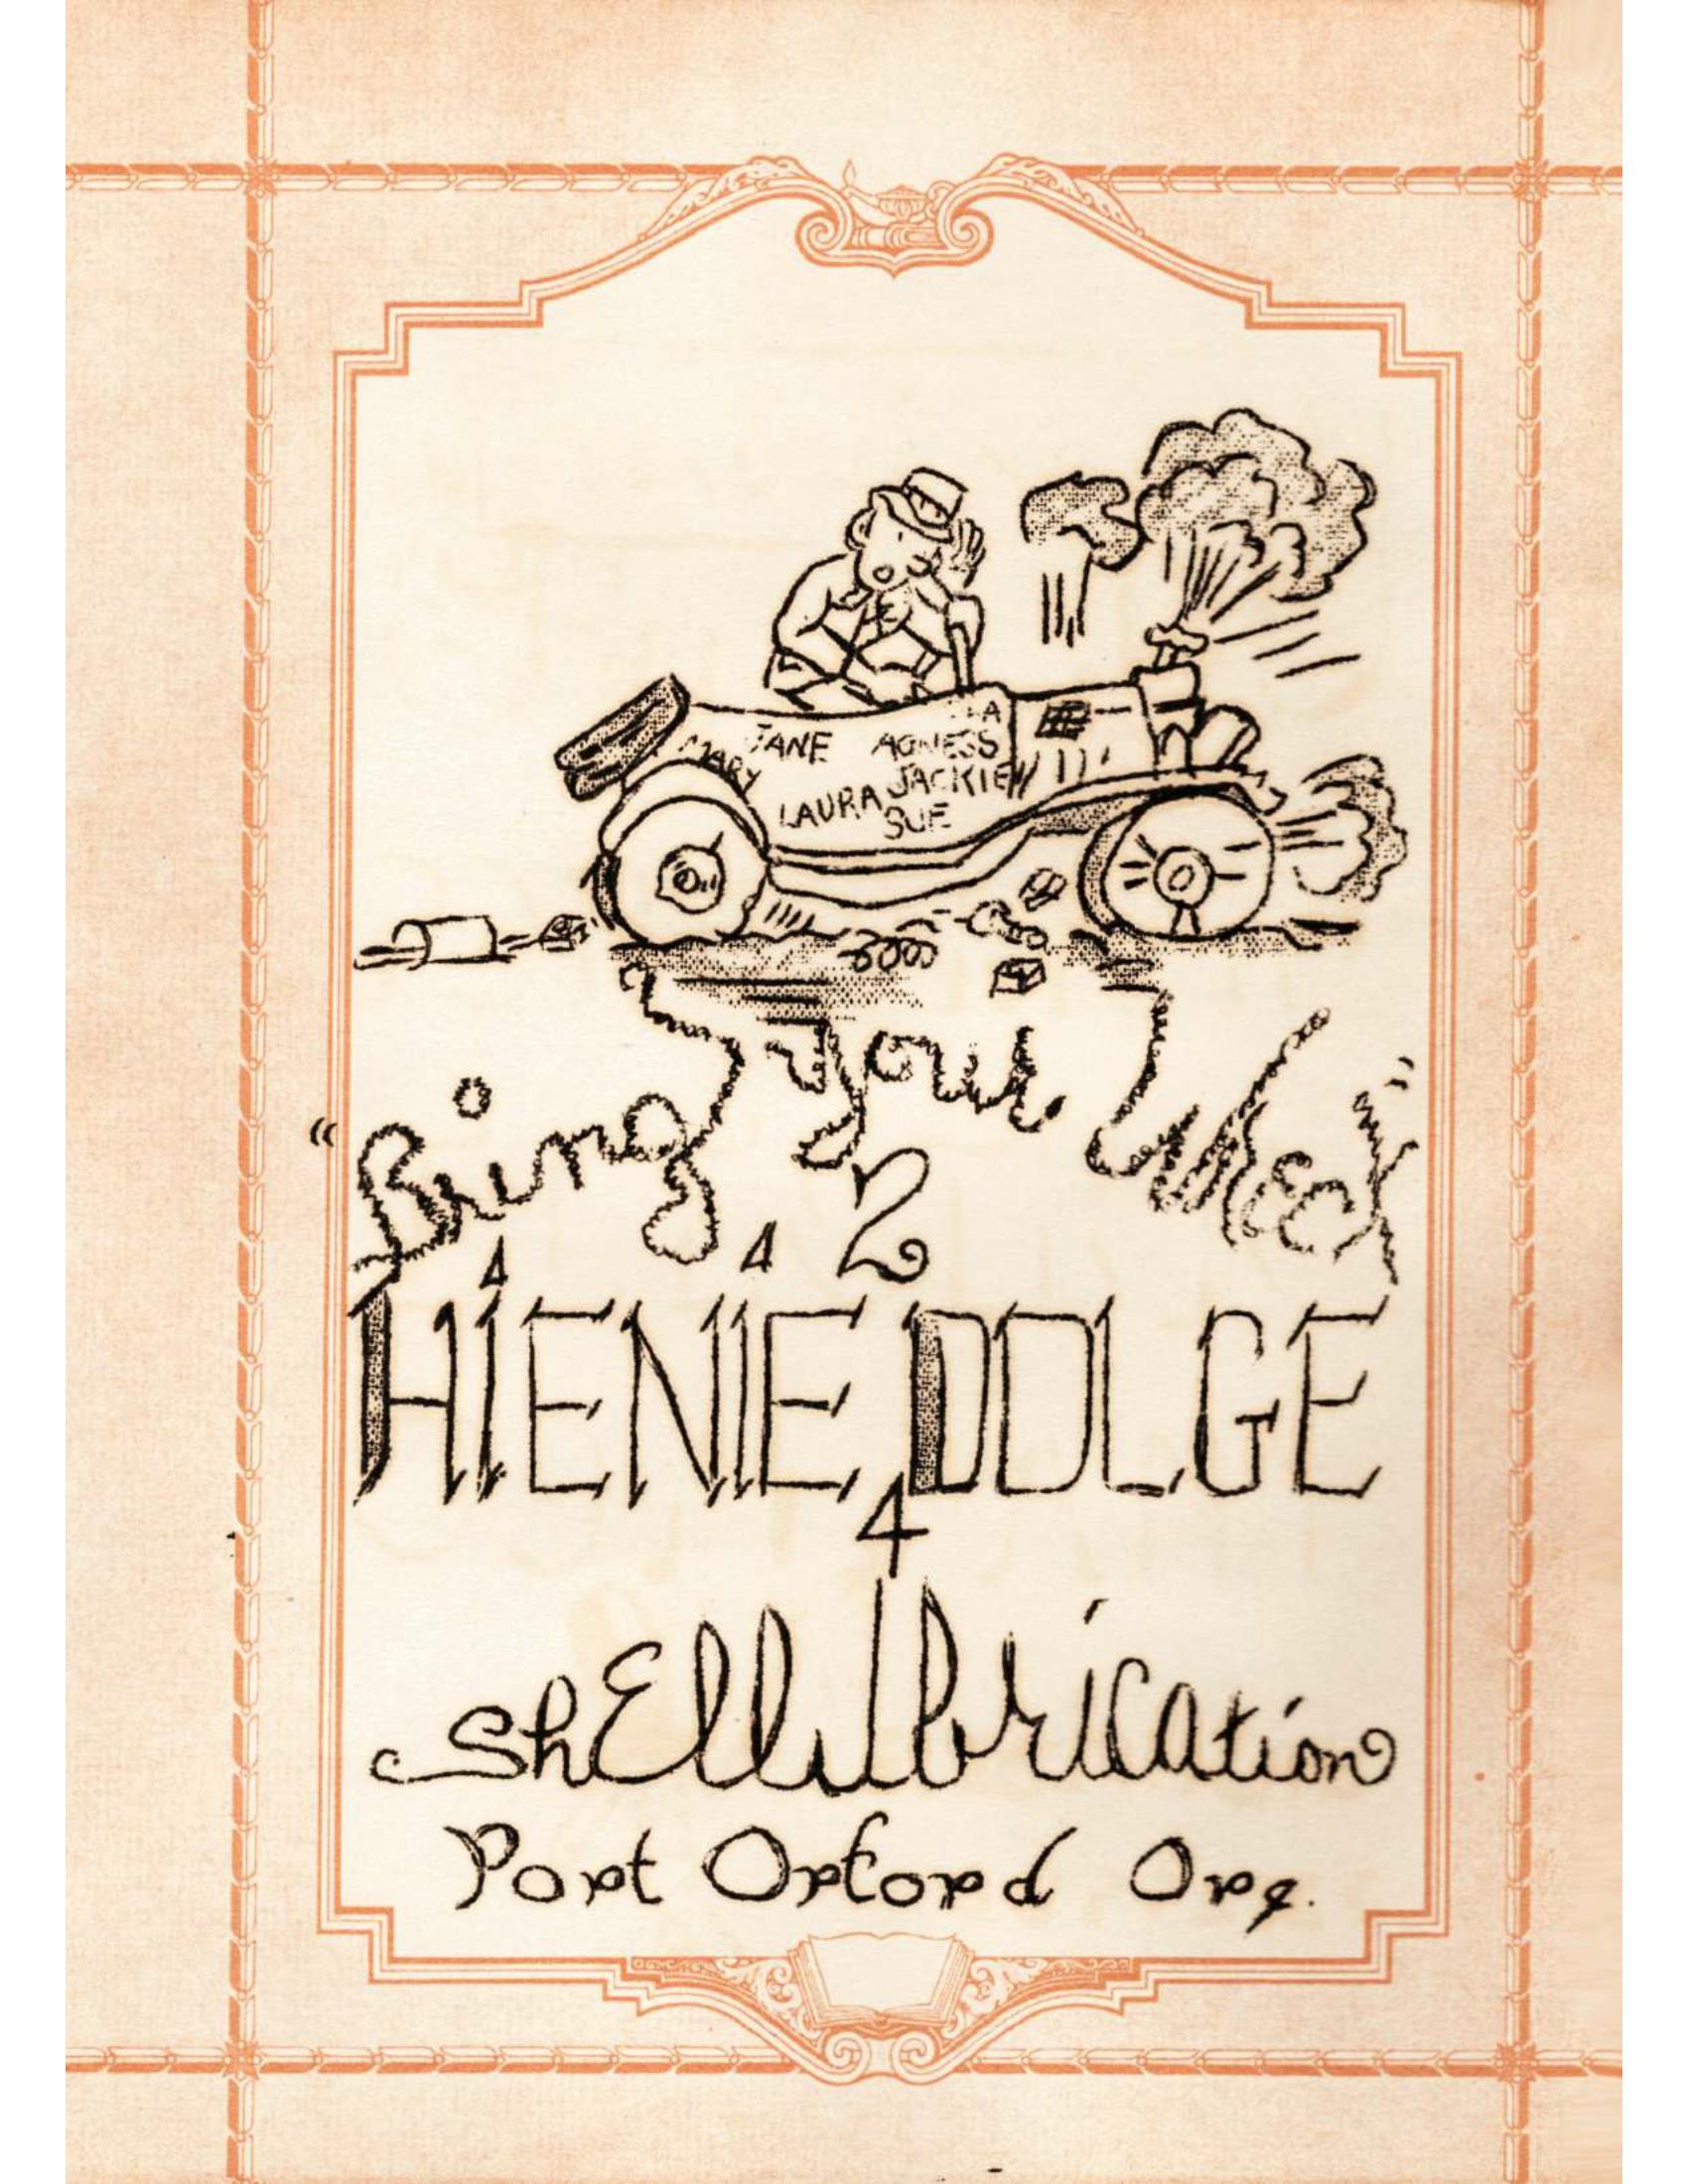 JANE AGNESS
MARY
LAURA JACKIE
SUE
"Bring your Wreck"
2
HIENIE DOLGE
4
shEll lubrication
Port Orford Org.